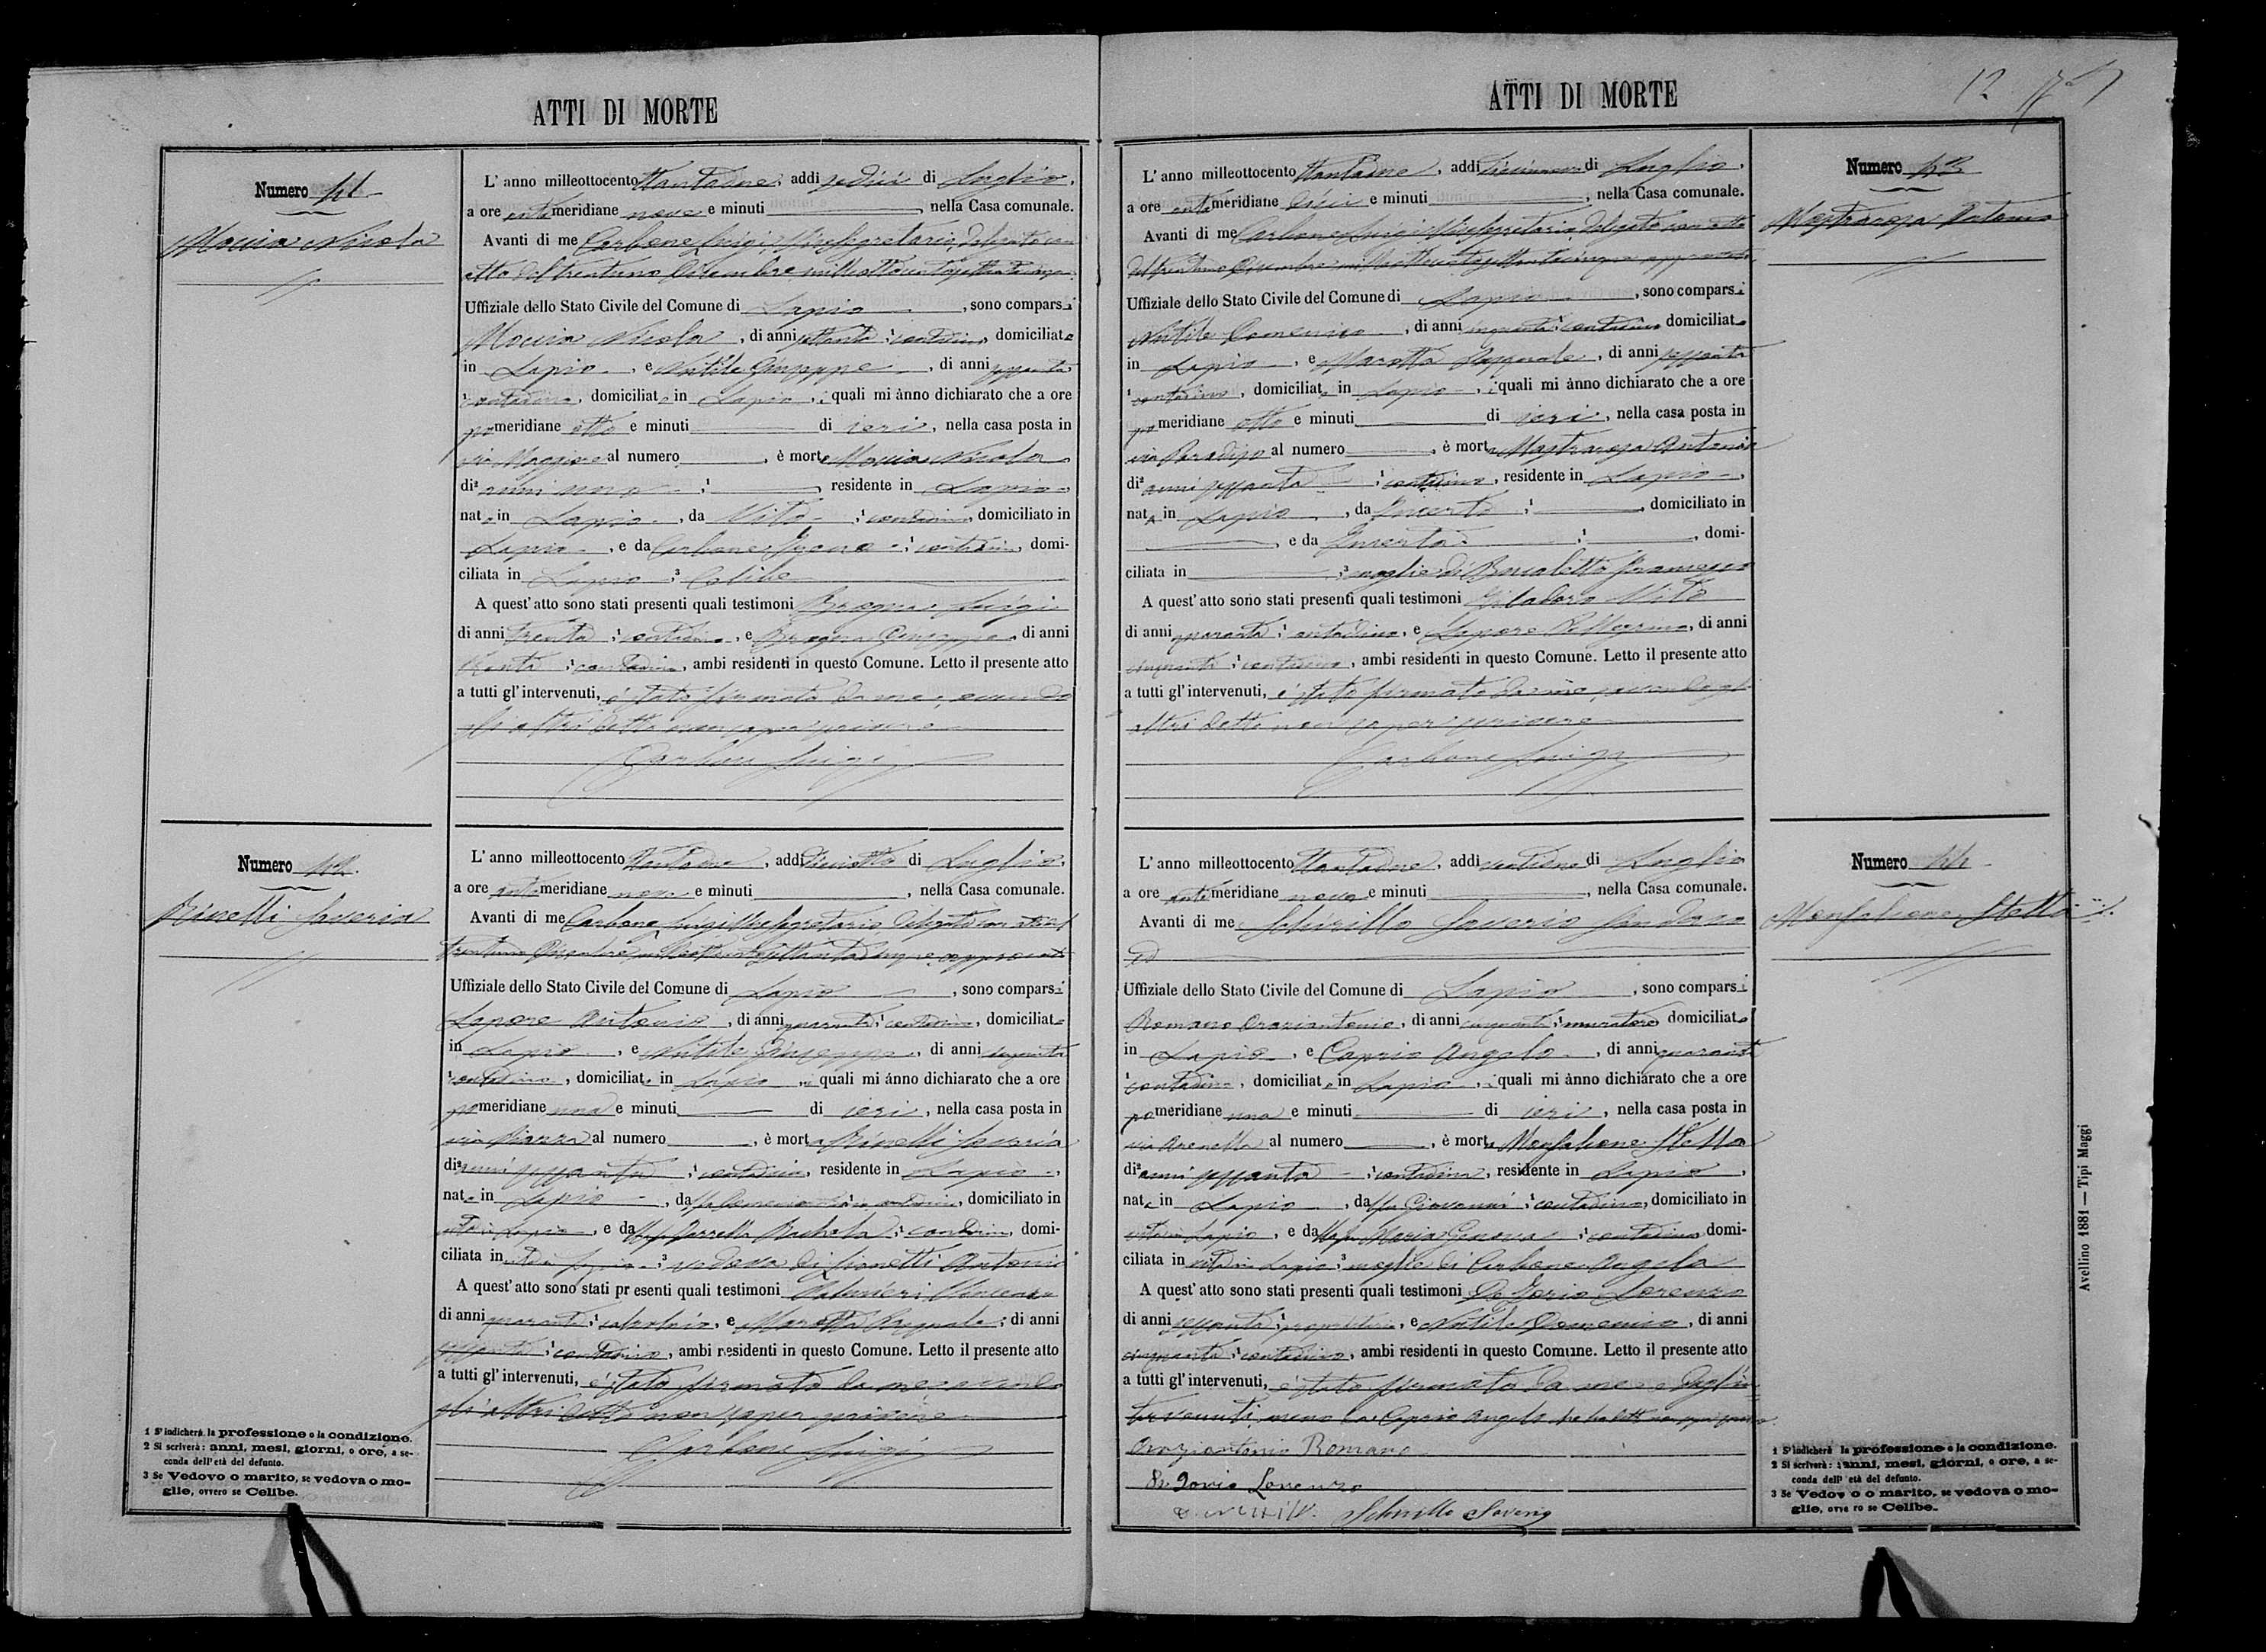 ATTI DI MORTE
Numero 41
Moccia Nicola
L' anno milleottocento ottantadue, addì sedici di Luglio,
a ore anti meridiane nove e minuti , nella Casa comunale.
Avanti di me Carbone Luigi, Vicesegretario, delegato con
atto del trentuno Dicembre milleottocentosettantacinque
Uffiziale dello Stato Civile del Comune di Lapio , sono comparsi
Moccia Nicola , di anni settanta ¹ contadino domiciliato
in Lapio , e Nutile Giuseppe , di anni sessanta
¹ contadino, domiciliato in Lapio , i quali mi ànno dichiarato che a ore
po meridiane otto e minuti di ieri , nella casa posta in
via Maggiore al numero , è morto Moccia Nicola
di² anni nove ¹ , residente in Lapio
nato in Lapio , da Vito ¹ contadino, domiciliato in
Lapio , e da Carbone ¹ contadina, domi-
ciliata in Lapio ³ Celibe
A quest' atto sono stati presenti quali testimoni Luigi
di anni trenta ¹ contadino, e Giuseppe, di anni
trenta ¹ contadino, ambi residenti in questo Comune. Letto il presente atto
a tutti gl' intervenuti, è stato firmato da me, avendo
gli altri detto non saper scrivere
Carbone Luigi
Numero 42
Rinelli Saveria
L' anno milleottocento ottantadue, addì diciotto di Luglio,
a ore anti meridiane nove e minuti , nella Casa comunale.
Avanti di me Carbone Luigi Vicesegretario delegato con atto del
trentuno Dicembre milleottocentosettantacinque approvato
Uffiziale dello Stato Civile del Comune di Lapio , sono comparsi
Lapore Antonio , di anni quaranta ¹ contadino, domiciliato
in Lapio , e Nutile Giuseppe , di anni sessanta
¹ contadino, domiciliato in Lapio , i quali mi ànno dichiarato che a ore
po meridiane una e minuti di ieri , nella casa posta in
via Piazza al numero , è morta Rinelli Saveria
di² anni sessanta ¹ contadina, residente in Lapio ,
nata in Lapio , da fu Domenico ¹ contadino, domiciliato in
vita in Lapio , e da fu Rachela ¹ contadina, domi-
ciliata in vita in Lapio ³ vedova di Antonio
A quest' atto sono stati presenti quali testimoni Palmieri Vincenzo
di anni quaranta ¹ calzolaio, e Marotta Pasquale, di anni
sessanta ¹ contadino, ambi residenti in questo Comune. Letto il presente atto
a tutti gl' intervenuti, è stato firmato da me avendo
gli altri detto non saper scrivere
Carbone Luigi
1 S' indicherà la professione o la condizione.
2 Si scriverà: anni, mesi, giorni, o ore, a se-
conda dell' età del defunto.
3 Se Vedovo o marito, se vedova o mo-
glie, ovvero se Celibe.
ATTI DI MORTE
12
Numero 43
Mastrarosa Antonia
L' anno milleottocento ottantadue, addì diciannove di Luglio,
a ore anti meridiane dieci e minuti , nella Casa comunale.
Avanti di me Carbone Luigi Vicesegretario delegato con atto
del trentuno Dicembre milleottocentosettantacinque approvato
Uffiziale dello Stato Civile del Comune di Lapio , sono comparsi
Nutile Domenico , di anni cinquanta ¹ contadino domiciliato
in Lapio , e Marotta Pasquale , di anni sessanta
¹ contadino, domiciliato in Lapio , i quali mi ànno dichiarato che a ore
po meridiane otto e minuti di ieri , nella casa posta in
via Paradiso al numero , è morta Mastrarosa Antonia
di² anni sessanta ¹ contadina, residente in Lapio ,
nata in Lapio , da Incerto ¹ , domiciliato in
, e da Incerta ¹ , domi-
ciliata in ³ moglie di Boccaletti Francesco
A quest' atto sono stati presenti quali testimoni Vito
di anni quaranta ¹ contadino, e Lapore Pellegrino, di anni
cinquanta ¹ contadino, ambi residenti in questo Comune. Letto il presente atto
a tutti gl' intervenuti, è stato firmato da me, avendo gli
altri detto non saper scrivere
Carbone Luigi
Numero 44
Monfalcone Stella
L' anno milleottocento ottantadue, addì ventidue di Luglio
a ore anti meridiane nove e minuti , nella Casa comunale.
Avanti di me Schirillo Saverio Sindaco
ed
Uffiziale dello Stato Civile del Comune di Lapio , sono comparsi
Romano Oraziantonio, di anni cinquanta ¹ muratore domiciliato
in Lapio , e Caprio Angelo , di anni quaranta
¹ contadino, domiciliato in Lapio , i quali mi ànno dichiarato che a ore
po meridiane una e minuti di ieri , nella casa posta in
via Arenella al numero , è morta Monfalcone Stella
di² anni sessanta ¹ contadina, residente in Lapio ,
nata in Lapio , da fu Giovanni ¹ contadino, domiciliato in
vita in Lapio , e da fu Maria Genova ¹ contadina domi-
ciliata in vita in Lapio ³ moglie di Carbone Angelo
A quest' atto sono stati presenti quali testimoni De Jorio Lorenzo
di anni sessanta ¹ proprietario, e Nutile Domenico, di anni
cinquanta ¹ contadino, ambi residenti in questo Comune. Letto il presente atto
a tutti gl' intervenuti, è stato firmato da me e dagli in-
tervenuti meno da Caprio Angelo che ha detto non saper scrivere
Oraziantonio Romano
De Iorio Lorenzo
Schirillo Saverio
1 S' indicherà la professione o la condizione.
2 Si scriverà: anni, mesi, giorni, o ore, a se-
conda dell' età del defunto.
3 Se Vedovo o marito, se vedova o mo-
glie, ovvero se Celibe.
Avellino 1881 — Tipi Maggi